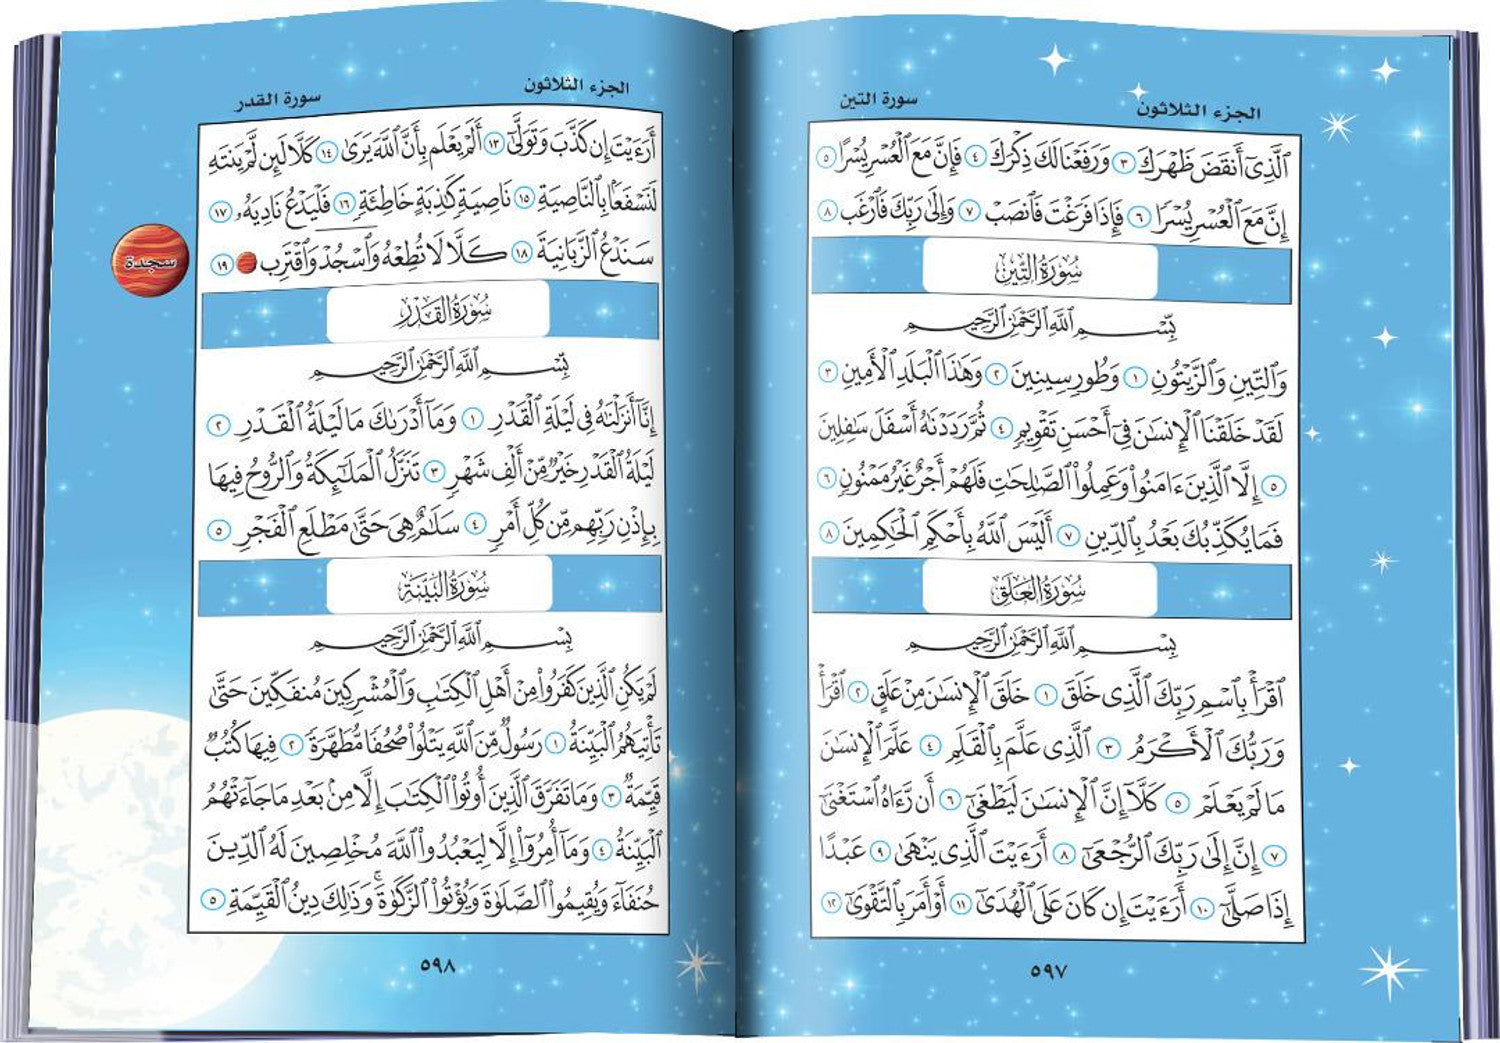 الجزء الثلاثون
سورة التين
ٱلَّذِىٓ أَنقَضَ ظَهْرَكَ ٣ وَرَفَعْنَا لَكَ ذِكْرَكَ ٤ فَإِنَّ مَعَ ٱلْعُسْرِ يُسْرًا ٥
إِنَّ مَعَ ٱلْعُسْرِ يُسْرًا ٦ فَإِذَا فَرَغْتَ فَٱنصَبْ ٧ وَإِلَىٰ رَبِّكَ فَٱرْغَب ٨
سُورَةُ التِّينِ
بِسْمِ ٱللَّهِ ٱلرَّحْمَٰنِ ٱلرَّحِيمِ
وَٱلتِّينِ وَٱلزَّيْتُونِ ١ وَطُورِ سِينِينَ ٢ وَهَٰذَا ٱلْبَلَدِ ٱلْأَمِينِ ٣
لَقَدْ خَلَقْنَا ٱلْإِنسَٰنَ فِىٓ أَحْسَنِ تَقْوِيمٍ ٤ ثُمَّ رَدَدْنَٰهُ أَسْفَلَ سَٰفِلِينَ
٥ إِلَّا ٱلَّذِينَ ءَامَنُوا۟ وَعَمِلُوا۟ ٱلصَّٰلِحَٰتِ فَلَهُمْ أَجْرٌ غَيْرُ مَمْنُونٍ ٦
فَمَا يُكَذِّبُكَ بَعْدُ بِٱلدِّينِ ٧ أَلَيْسَ ٱللَّهُ بِأَحْكَمِ ٱلْحَٰكِمِينَ ٨
سُورَةُ العَلَقِ
بِسْمِ ٱللَّهِ ٱلرَّحْمَٰنِ ٱلرَّحِيمِ
ٱقْرَأْ بِٱسْمِ رَبِّكَ ٱلَّذِى خَلَقَ ١ خَلَقَ ٱلْإِنسَٰنَ مِنْ عَلَقٍ ٢ ٱقْرَأْ
وَرَبُّكَ ٱلْأَكْرَمُ ٣ ٱلَّذِى عَلَّمَ بِٱلْقَلَمِ ٤ عَلَّمَ ٱلْإِنسَٰنَ
مَا لَمْ يَعْلَمْ ٥ كَلَّآ إِنَّ ٱلْإِنسَٰنَ لَيَطْغَىٰٓ ٦ أَن رَّءَاهُ ٱسْتَغْنَىٰٓ
٧ إِنَّ إِلَىٰ رَبِّكَ ٱلرُّجْعَىٰٓ ٨ أَرَءَيْتَ ٱلَّذِى يَنْهَىٰ ٩ عَبْدًا
إِذَا صَلَّىٰٓ ١٠ أَرَءَيْتَ إِن كَانَ عَلَى ٱلْهُدَىٰٓ ١١ أَوْ أَمَرَ بِٱلتَّقْوَىٰٓ ١٢
٥٩٧
الجزء الثلاثون
سورة القدر
أَرَءَيْتَ إِن كَذَّبَ وَتَوَلَّىٰٓ ١٣ أَلَمْ يَعْلَم بِأَنَّ ٱللَّهَ يَرَىٰ ١٤ كَلَّا لَئِن لَّمْ يَنتَهِ
لَنَسْفَعًۢا بِٱلنَّاصِيَةِ ١٥ نَاصِيَةٍ كَٰذِبَةٍ خَاطِئَةٍ ١٦ فَلْيَدْعُ نَادِيَهُۥ ١٧
سَنَدْعُ ٱلزَّبَانِيَةَ ١٨ كَلَّا لَا تُطِعْهُ وَٱسْجُدْ وَٱقْتَرِب ١٩
سجدة
سُورَةُ القَدْرِ
بِسْمِ ٱللَّهِ ٱلرَّحْمَٰنِ ٱلرَّحِيمِ
إِنَّآ أَنزَلْنَٰهُ فِى لَيْلَةِ ٱلْقَدْرِ ١ وَمَآ أَدْرَىٰكَ مَا لَيْلَةُ ٱلْقَدْرِ ٢
لَيْلَةُ ٱلْقَدْرِ خَيْرٌ مِّنْ أَلْفِ شَهْرٍ ٣ تَنَزَّلُ ٱلْمَلَٰٓئِكَةُ وَٱلرُّوحُ فِيهَا
بِإِذْنِ رَبِّهِم مِّن كُلِّ أَمْرٍ ٤ سَلَٰمٌ هِىَ حَتَّىٰ مَطْلَعِ ٱلْفَجْرِ ٥
سُورَةُ البَيِّنَةِ
بِسْمِ ٱللَّهِ ٱلرَّحْمَٰنِ ٱلرَّحِيمِ
لَمْ يَكُنِ ٱلَّذِينَ كَفَرُوا۟ مِنْ أَهْلِ ٱلْكِتَٰبِ وَٱلْمُشْرِكِينَ مُنفَكِّينَ حَتَّىٰ
تَأْتِيَهُمُ ٱلْبَيِّنَةُ ١ رَسُولٌ مِّنَ ٱللَّهِ يَتْلُوا۟ صُحُفًا مُّطَهَّرَةً ٢ فِيهَا كُتُبٌ
قَيِّمَةٌ ٣ وَمَا تَفَرَّقَ ٱلَّذِينَ أُوتُوا۟ ٱلْكِتَٰبَ إِلَّا مِنۢ بَعْدِ مَا جَآءَتْهُمُ
ٱلْبَيِّنَةُ ٤ وَمَآ أُمِرُوٓا۟ إِلَّا لِيَعْبُدُوا۟ ٱللَّهَ مُخْلِصِينَ لَهُ ٱلدِّينَ
حُنَفَآءَ وَيُقِيمُوا۟ ٱلصَّلَوٰةَ وَيُؤْتُوا۟ ٱلزَّكَوٰةَ ۚ وَذَٰلِكَ دِينُ ٱلْقَيِّمَةِ ٥
٥٩٨